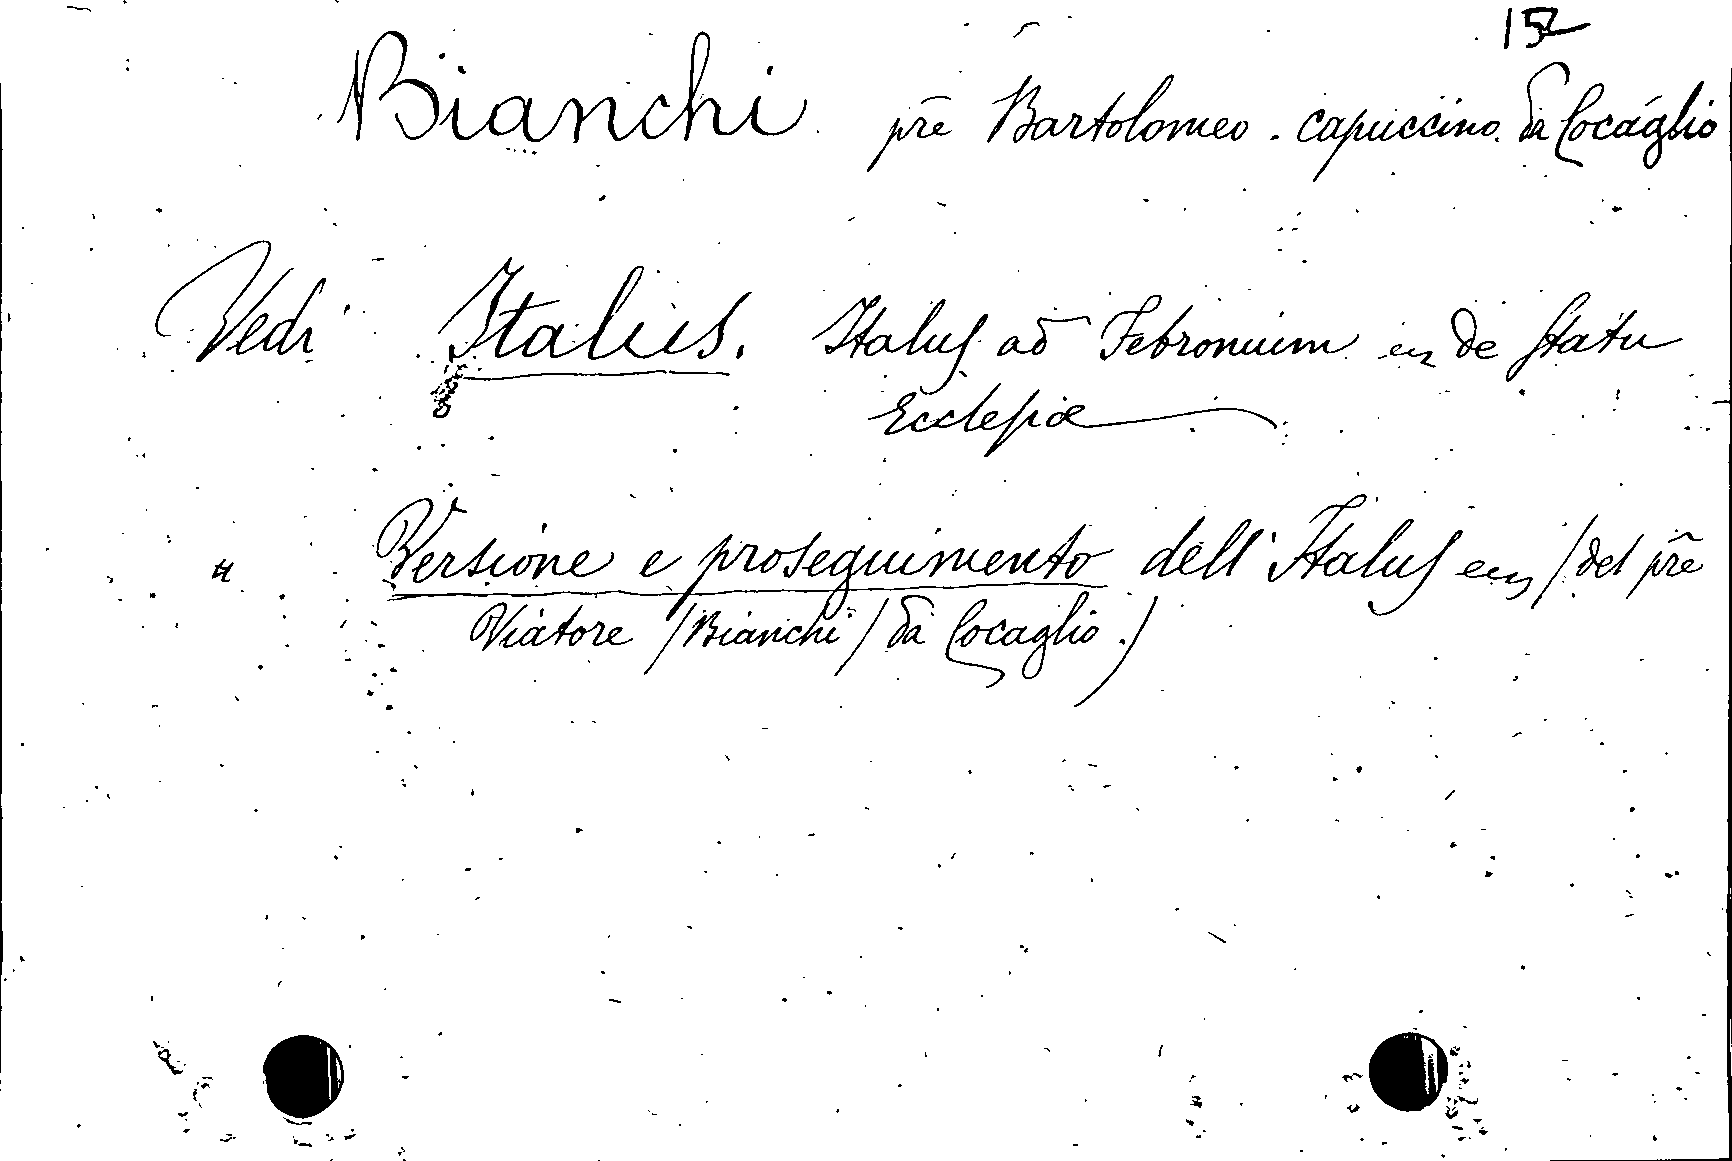 152
Bianchi prē Bartolomeo. capuccino. da Cocaglio
Vedi Italus. Italus ad Febronium de Statu
Ecclesiæ
" Versione e proseguimento dell'Italus /del prē
Viatore /Bianchi/ da Cocaglio./